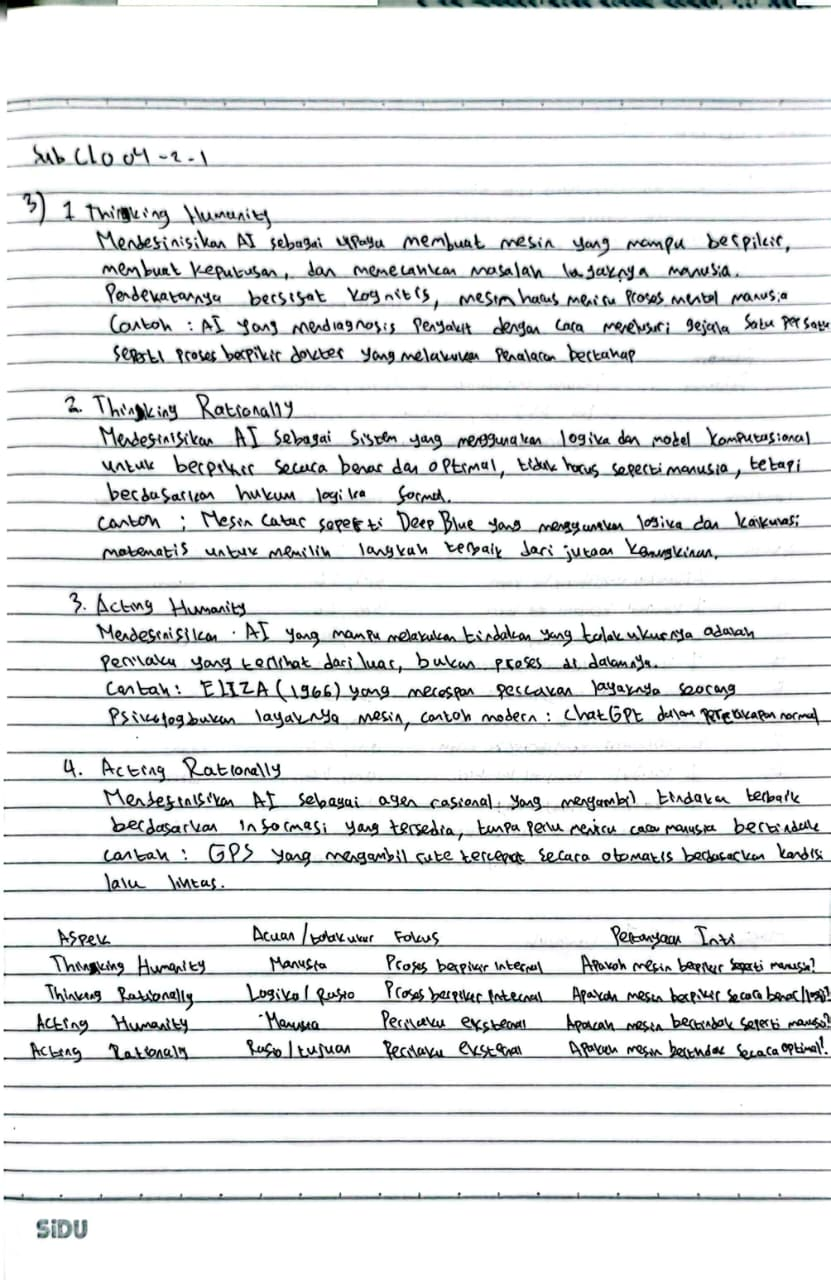 Sub CLO 04-2-1
3) 1 Thingking Humanity
Mendefinisikan AI sebagai upaya membuat mesin yang mampu berpikir,
membuat keputusan, dan memecahkan masalah layaknya manusia.
Pendekatannya bersifat kognitif, mesin harus meniru proses mental manusia
Contoh : AI yang mendiagnosis penyakit dengan cara menelusuri gejala satu persatu
seperti proses berpikir dokter yang melakukan penalaran bertahap
2. Thingking Rationally
Mendefinisikan AI sebagai sistem yang menggunakan logika dan model komputasional
untuk berpikir secara benar dan optimal, tidak harus seperti manusia, tetapi
berdasarkan hukum logika formal.
contoh : Mesin catur seperti Deep Blue yang menggunakan logika dan kalkulasi
matematis untuk memilih langkah terbaik dari jutaan kemungkinan.
3. Acting Humanity
Mendefinisikan AI yang mampu melakukan tindakan yang tolak ukurnya adalah
perilaku yang terlihat dari luar, bukan proses di dalamnya.
Contoh : ELIZA (1966) yang merespon percakapan layaknya seorang
psikolog bukan layaknya mesin, contoh modern : ChatGPT dalam percakapan normal
4. Acting Rationally
Mendefinisikan AI sebagai agen rasional yang mengambil tindakan terbaik
berdasarkan informasi yang tersedia, tanpa perlu meniru cara manusia bertindak
contoh : GPS yang mengambil rute tercepat secara otomatis berdasarkan kondisi
lalu lintas.
Aspek Acuan/tolak ukur Fokus Pertanyaan Inti
Thingking Humanity Manusia Proses berpikir internal Apakah mesin berpikir seperti manusia?
Thinking Rationally Logika/Rasio Proses berpikir internal Apakah mesin berpikir secara benar/logis?
Acting Humanity Manusia Perilaku eksternal Apakah mesin bertindak seperti manusia?
Acting Rationaly Rasio/tujuan Perilaku eksternal Apakah mesin bertindak secara optimal?
SiDU